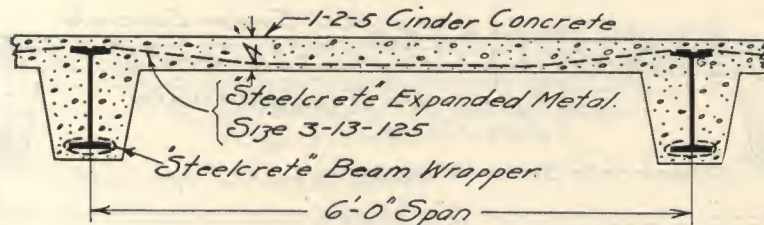 1-2-5 Cinder Concrete
4"
"Steelcrete" Expanded Metal.
Size 3-13-125
"Steelcrete" Beam Wrapper.
6'-0" Span